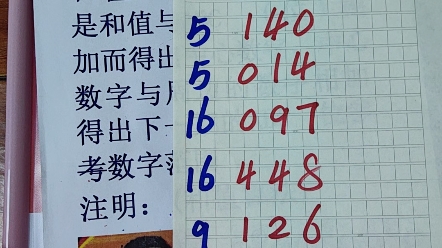 是和值与
加而得出
数字与
得出下
考数字
注明：
5 140
5 014
16 097
16 448
9 126